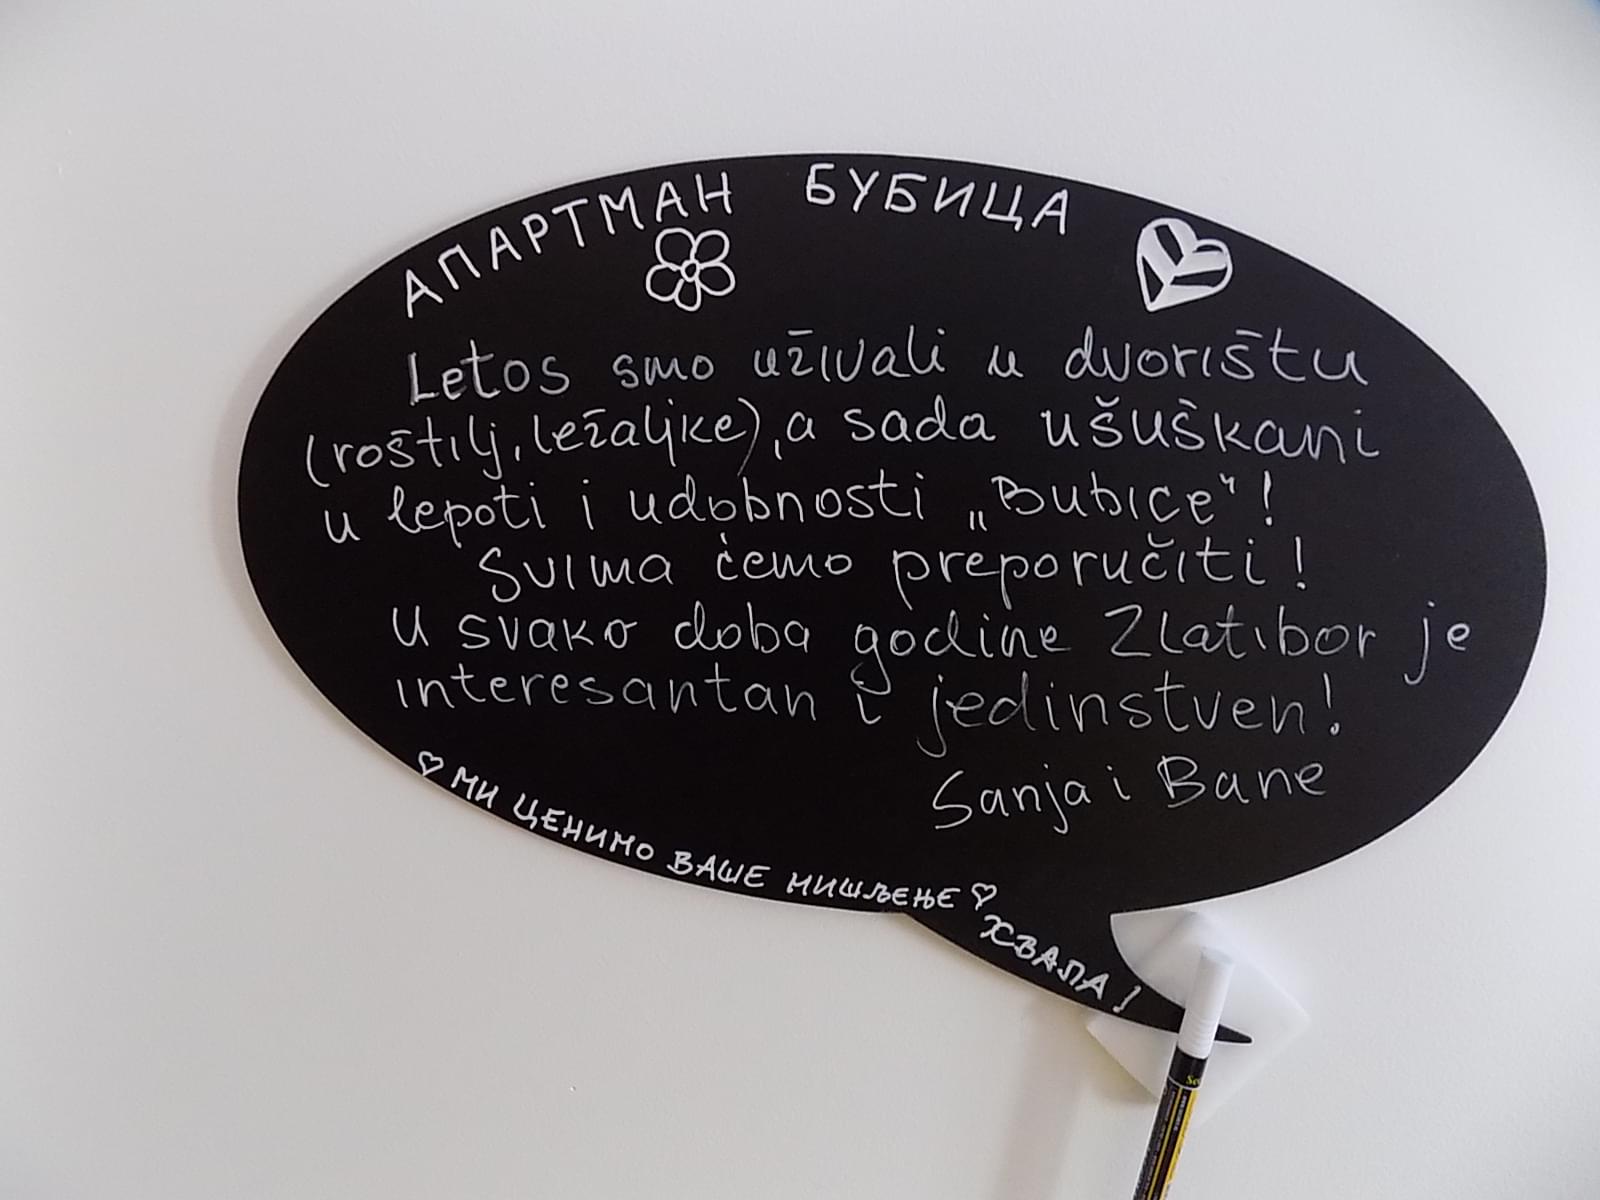 АПАРТМАН БУБИЦА
Letos smo uživali u dvorištu
(roštilj, ležaljke), a sada ušuškani
u lepoti i udobnosti „Bubice“!
Svima ćemo preporučiti!
U svako doba godine Zlatibor je
interesantan i jedinstven!
Sanja i Bane
♡ МИ ЦЕНИМО ВАШЕ МИШЉЕЊЕ ♡
ХВАЛА!